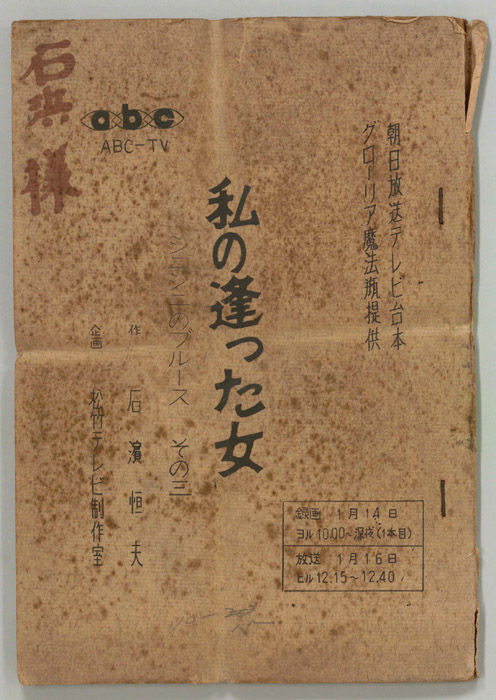 朝日放送テレビ台本
グローリア魔法瓶提供
私の逢った女
のブルース その三
作 石濵恒夫
企画 松竹テレビ制作室
石浜 様
abc
ABC-TV
録画 1月14日
ヨル10.00〜深夜(1本目)
放送 1月16日
ヒル12.15〜12.40